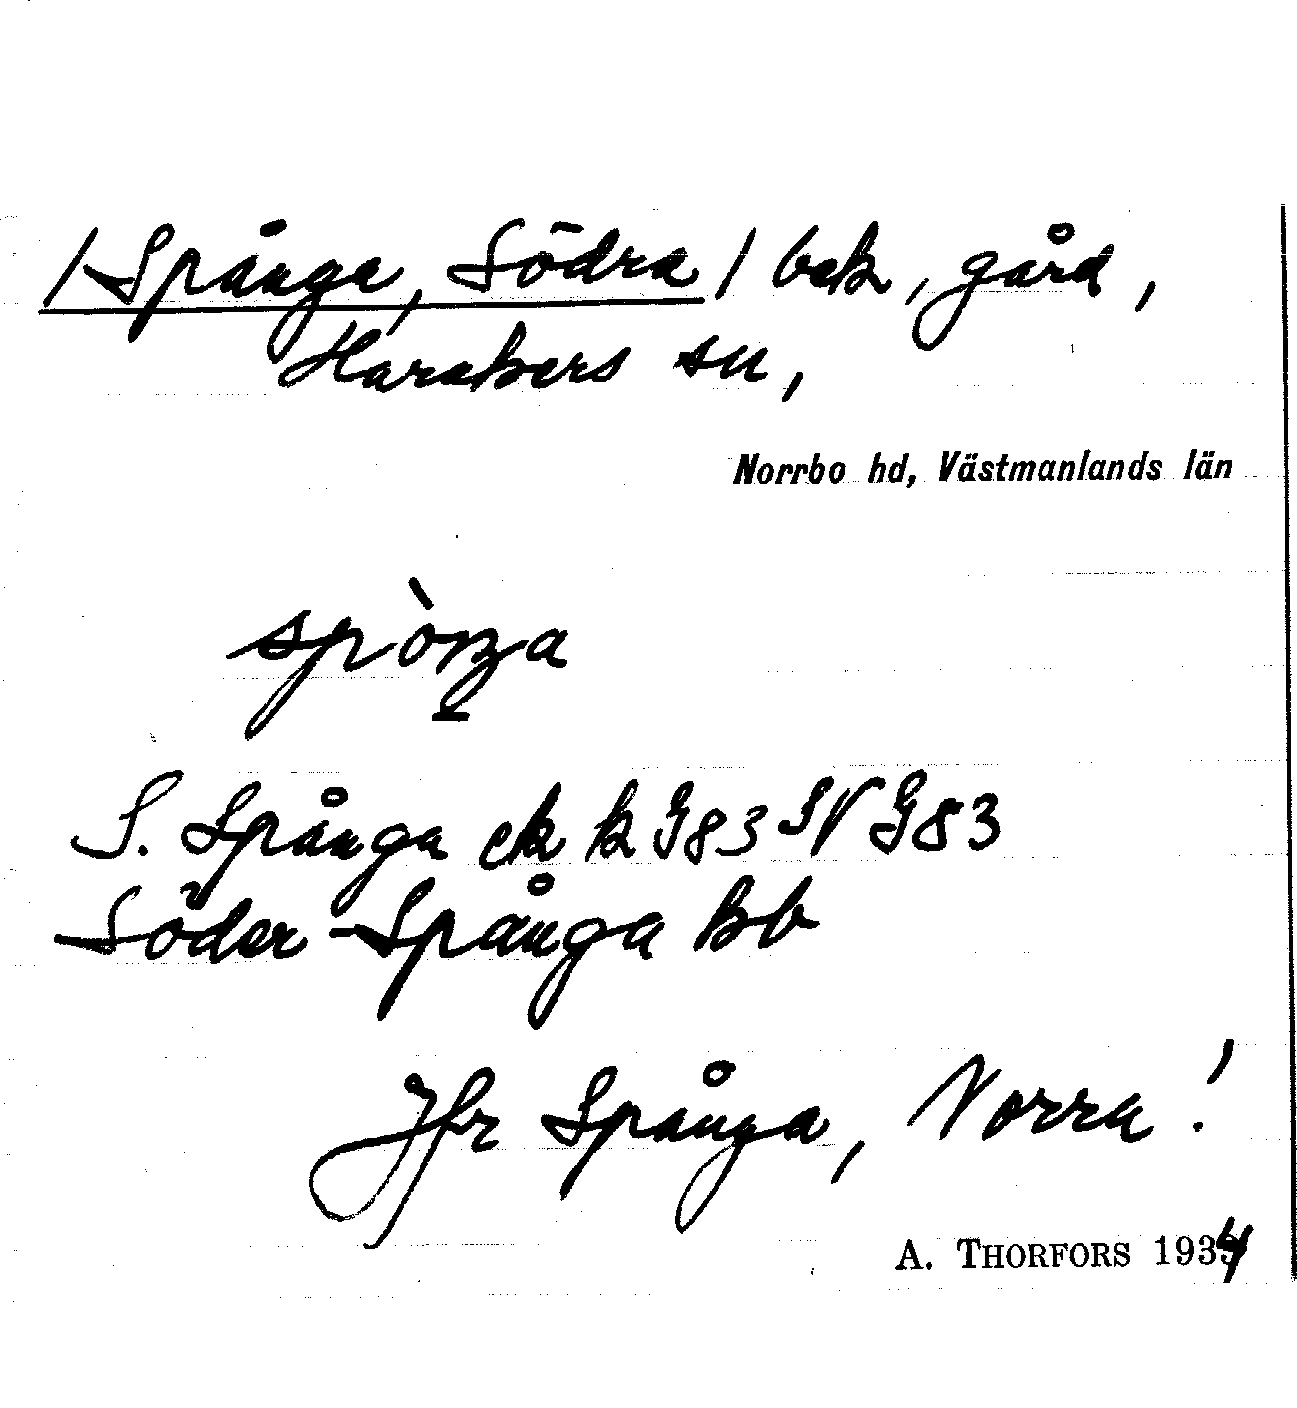 /Spånga, Södra/ bek, gård,
Harakers sn,
Norrbo hd, Västmanlands län
S. Spånga ek k G83 SV G83
Söder-Spånga Bb
Jfr Spånga, Norra!
A. THORFORS 1934